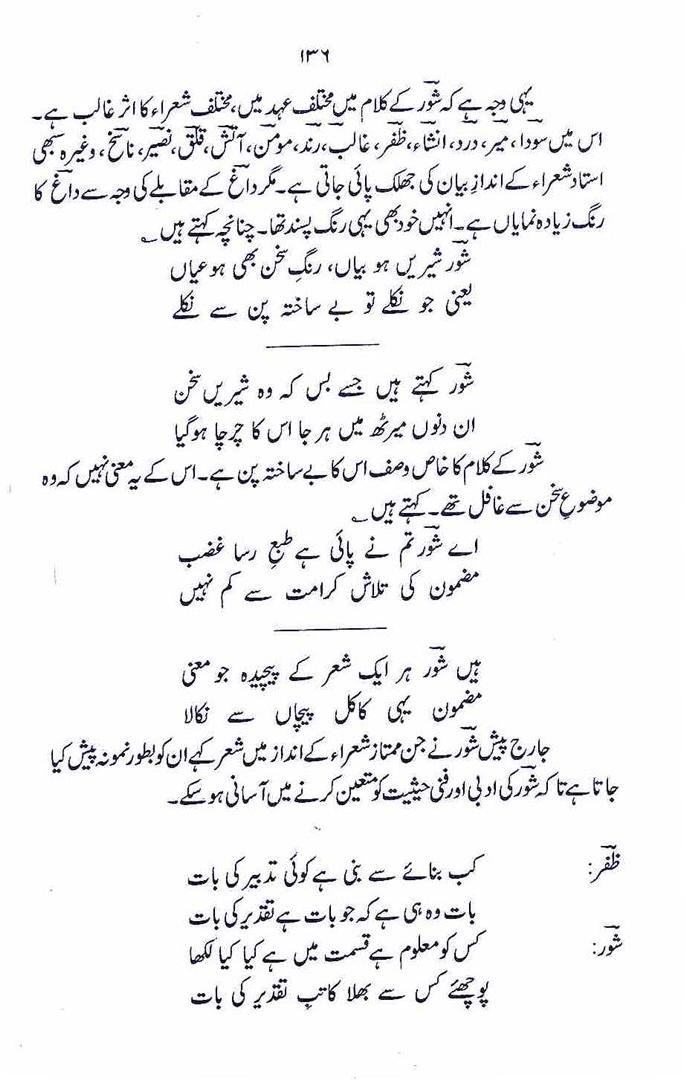 ۱۳۶
یہی وجہ ہے کہ شورؔ کے کلام میں مختلف عہد میں، مختلف شعراء کا اثر غالب ہے۔
اس میں سوداؔ، میرؔ، دردؔ، انشاءؔ، ظفرؔ، غالبؔ، رندؔ، مومنؔ، آتشؔ، قلقؔ، نصیرؔ، ناسخؔ، وغیرہ سبھی
استاد شعراء کے اندازِ بیان کی جھلک پائی جاتی ہے۔ مگر داغؔ کے مقابلے کی وجہ سے داغؔ کا
رنگ زیادہ نمایاں ہے۔ انہیں خود بھی یہی رنگ پسند تھا۔ چنانچہ کہتے ہیں ؎
شورؔ شیریں ہو بیاں، رنگِ سخن بھی ہو عیاں
یعنی جو نکلے تو بے ساختہ پن سے نکلے
شورؔ کہتے ہیں جسے بس کہ وہ شیریں سخن
ان دنوں میرٹھ میں ہر جا اس کا چرچا ہوگیا
شورؔ کے کلام کا خاص وصف اس کا بے ساختہ پن ہے۔ اس کے یہ معنی نہیں کہ وہ
موضوعِ سخن سے غافل تھے۔ کہتے ہیں ؎
اے شورؔ تم نے پائی ہے طبعِ رسا غضب
مضمون کی تلاش کرامت سے کم نہیں
ہیں شورؔ ہر ایک شعر کے پیچیدہ جو معنی
مضمون یہی کاکلِ پیچاں سے نکالا
جارج پیش شورؔ نے جن ممتاز شعراء کے انداز میں شعر کہے ان کو بطور نمونہ پیش کیا
جاتا ہے تاکہ شورؔ کی ادبی اور فنی حیثیت کو متعین کرنے میں آسانی ہو سکے۔
ظفرؔ: کب بنائے سے بنی ہے کوئی تدبیر کی بات
بات وہ ہی ہے کہ جو بات ہے تقدیر کی بات
شورؔ: کس کو معلوم ہے قسمت میں ہے کیا کیا لکھا
پوچھئے کس سے بھلا کاتبِ تقدیر کی بات